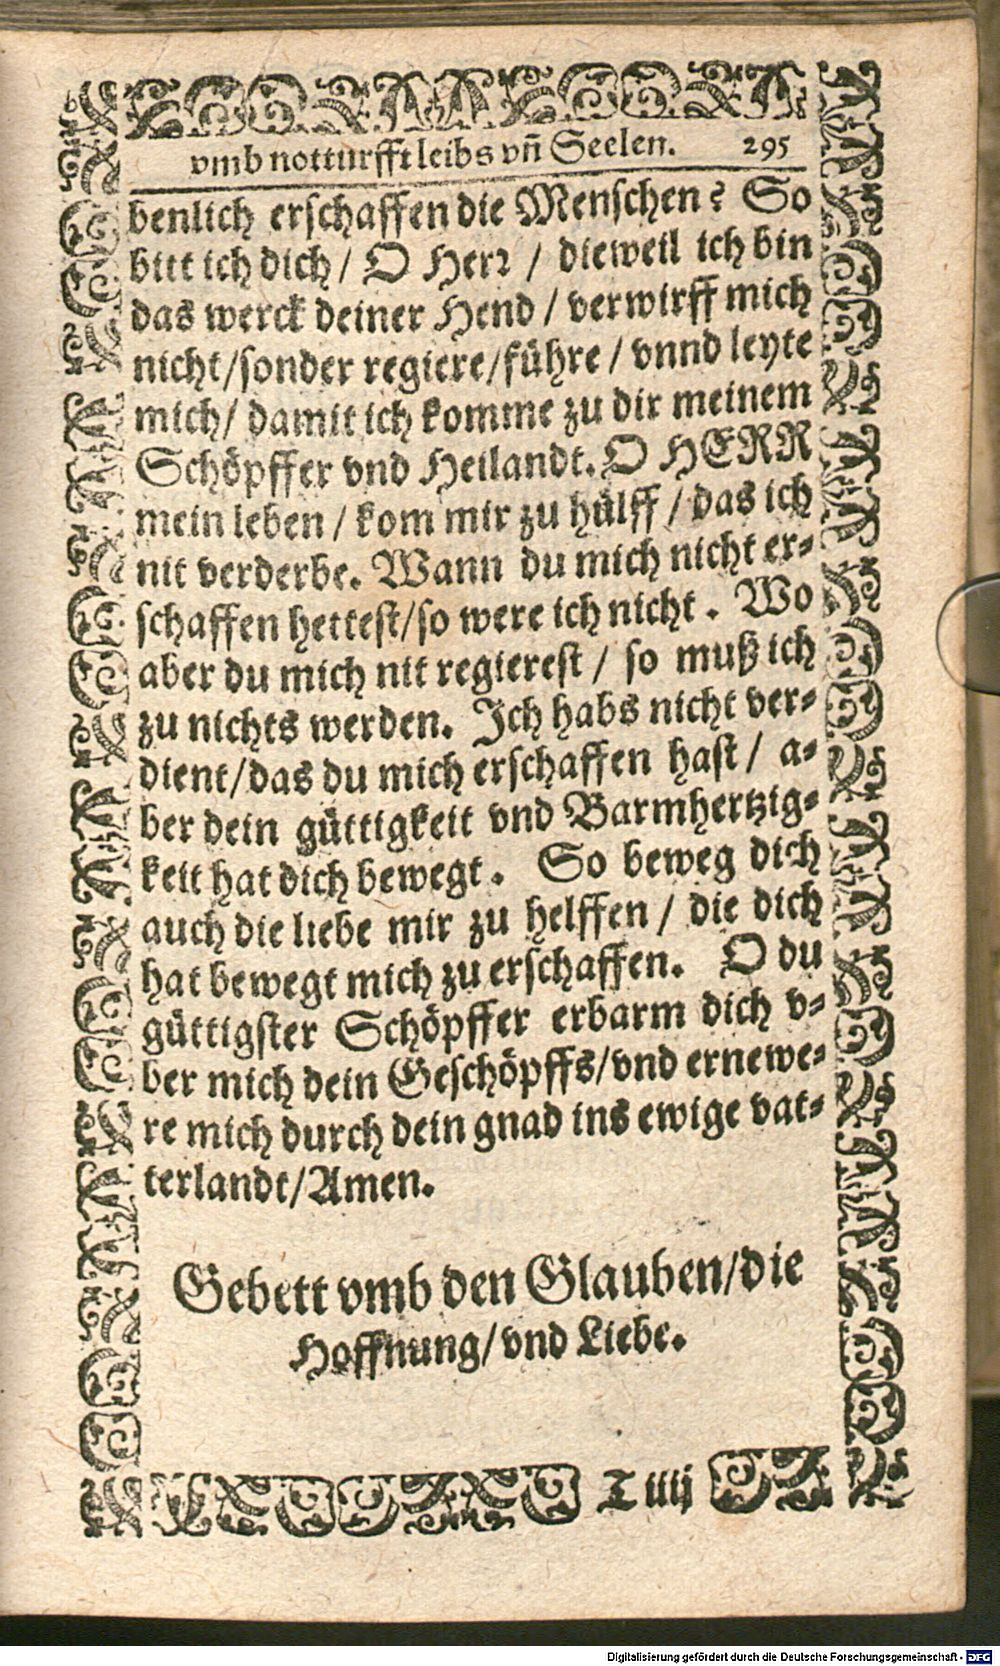 vmb notturfft leibs vñ Seelen. 295
benlich erschaffen die Menschen? So
bitt ich dich / O Herr / dieweil ich bin
das werck deiner Hend / verwirff mich
nicht/sonder regiere/führe / vnnd leyte
mich/ damit ich komme zu dir meinem
Schöpffer vnd Heilandt. O HERR
mein leben / kom mir zu hülff / das ich
nit verderbe. Wann du mich nicht er-
schaffen hettest/so were ich nicht. Wo
aber du mich nit regierest / so muß ich
zu nichts werden. Ich habs nicht ver-
dient/das du mich erschaffen hast/ a-
ber dein güttigkeit vnd Barmhertzig-
keit hat dich bewegt. So beweg dich
auch die liebe mir zu helffen / die dich
hat bewegt mich zu erschaffen. O du
güttigster Schöpffer erbarm dich v-
ber mich dein Geschöpffs/vnd ernewe-
re mich durch dein gnad ins ewige vat-
terlandt/Amen.
Gebett vmb den Glauben/die
Hoffnung/vnd Liebe.
T iiij
Digitalisierung gefördert durch die Deutsche Forschungsgemeinschaft - DFG